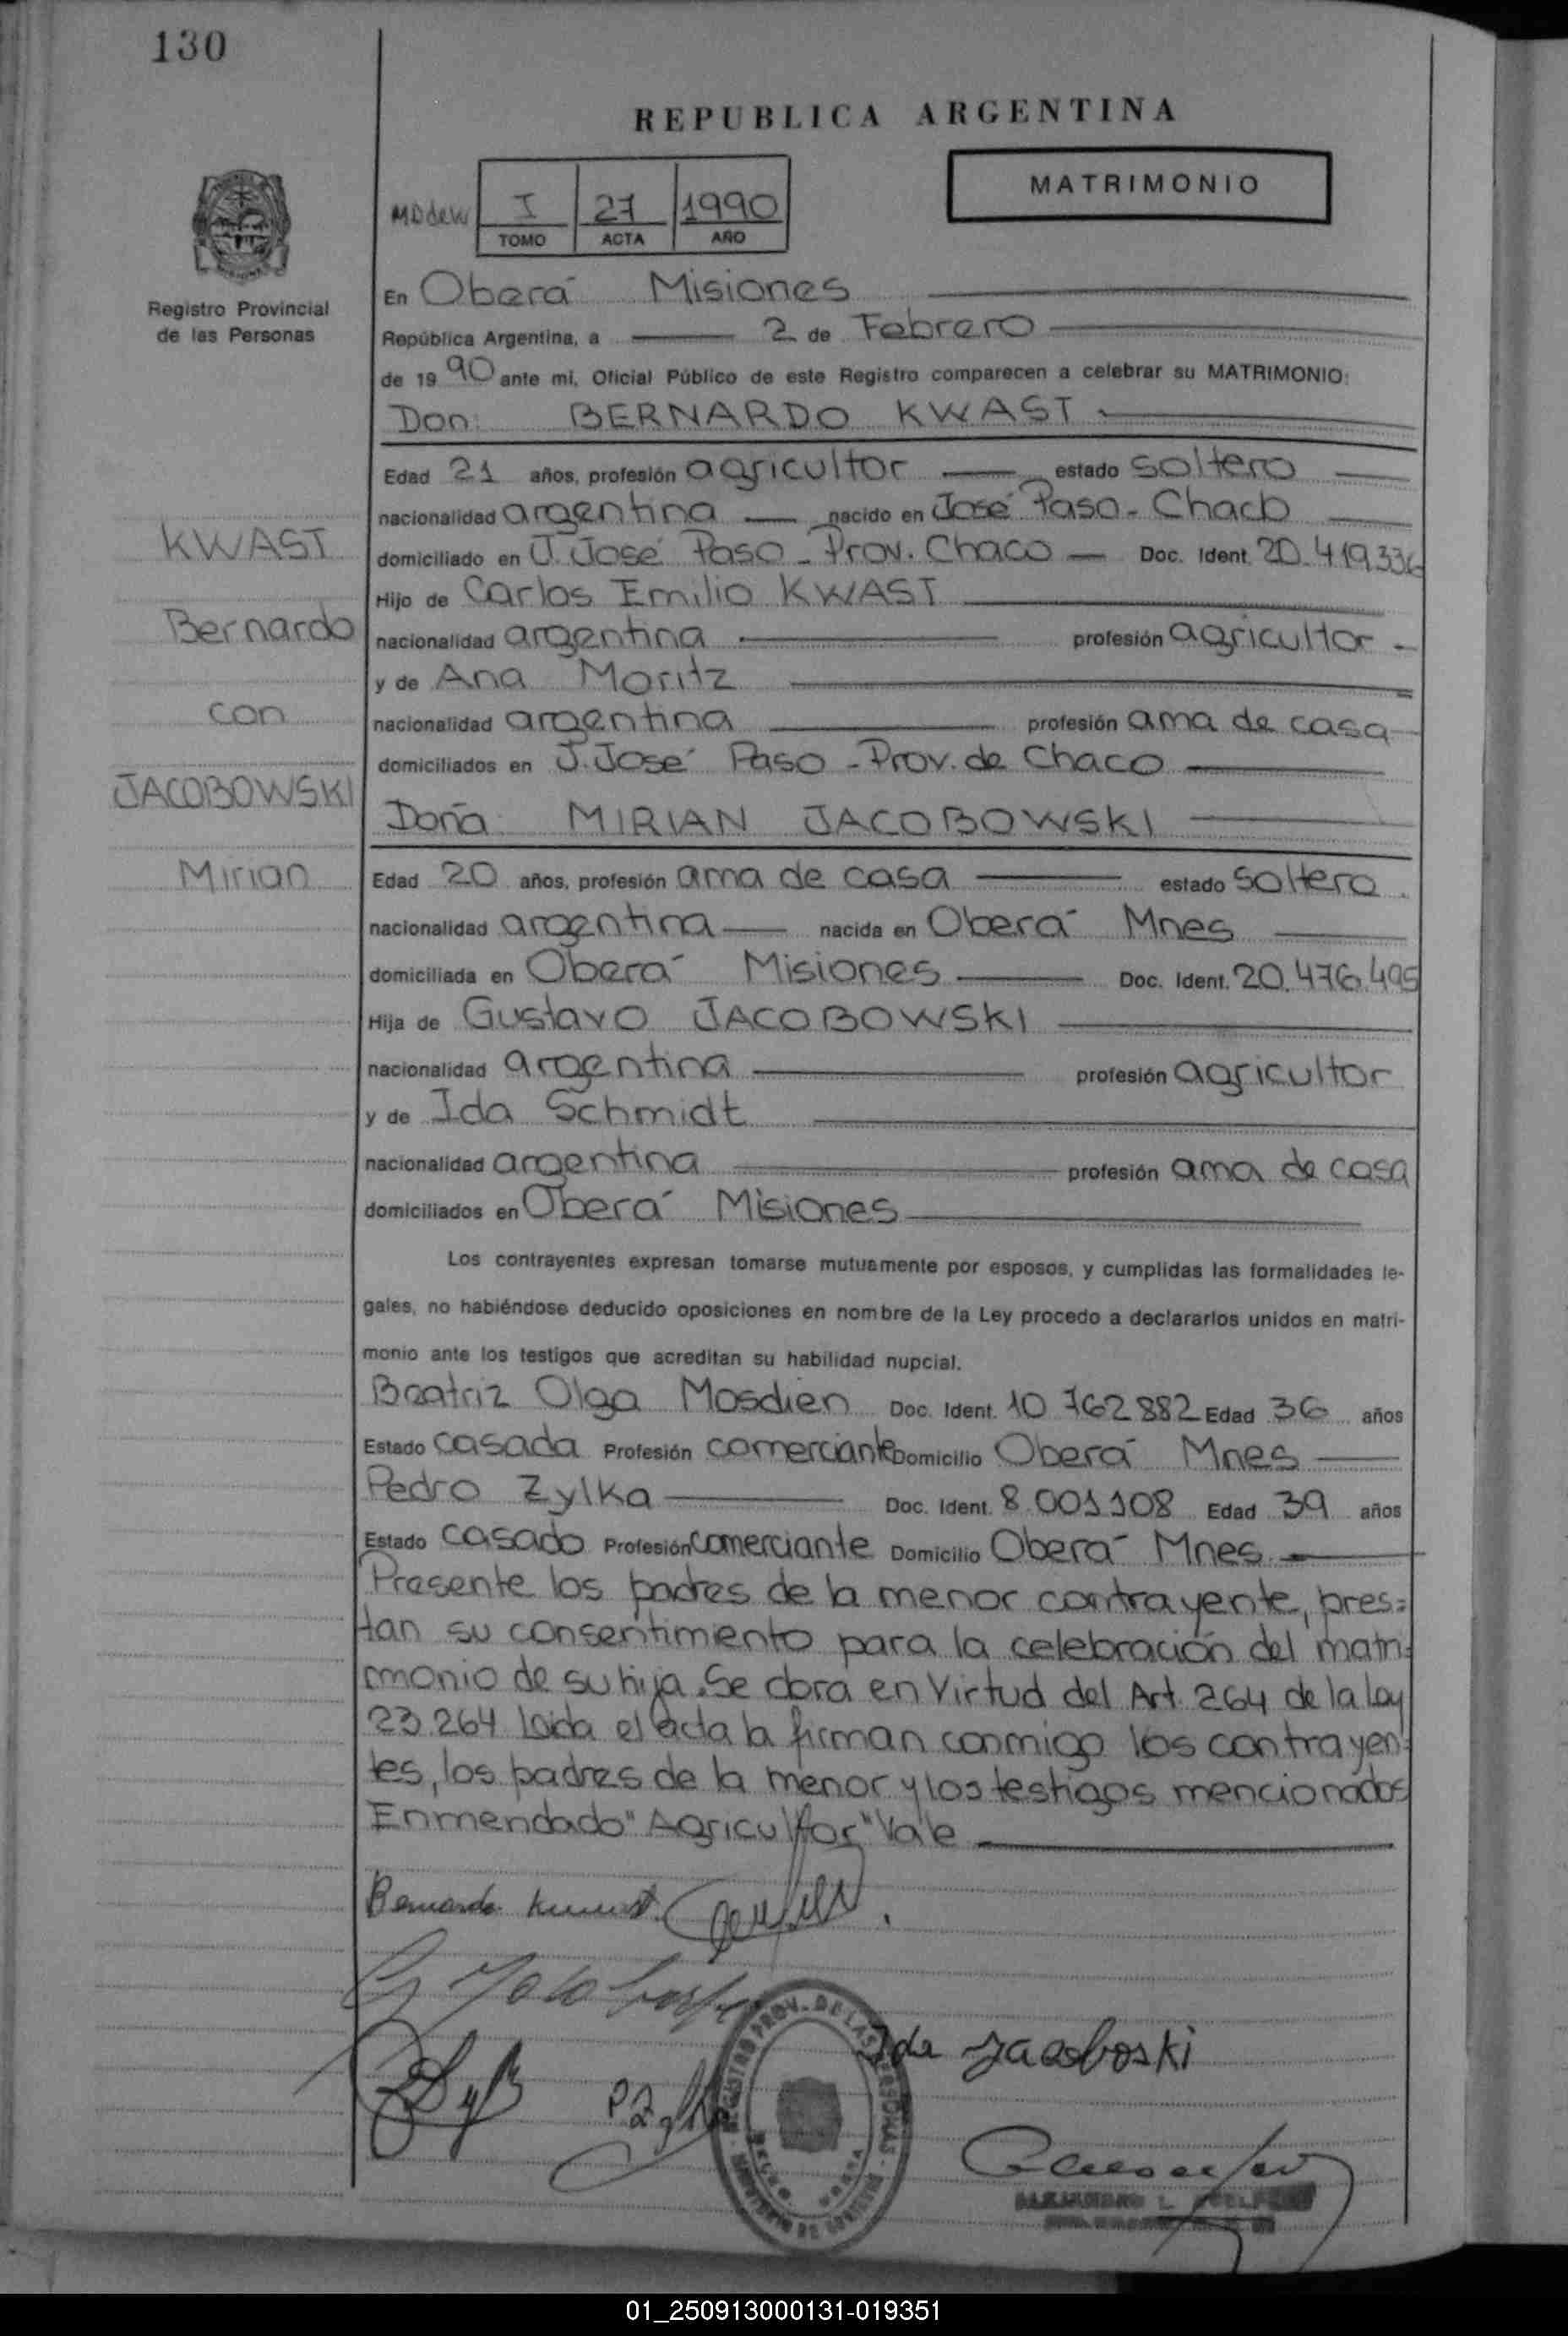 130
REPUBLICA ARGENTINA
MATRIMONIO
I 27 1990
TOMO ACTA AÑO
Registro Provincial
de las Personas
En Oberá Misiones
República Argentina, a 2 de Febrero
de 1990 ante mi, Oficial Público de este Registro comparecen a celebrar su MATRIMONIO:
Don: BERNARDO KWAST
Edad 21 años, profesión agricultor estado soltero
nacionalidad argentina nacido en José Paso - Chaco
domiciliado en J. José Paso - Prov. Chaco Doc. Ident. 20.419.336
Hijo de Carlos Emilio KWAST
nacionalidad argentina profesión agricultor
y de Ana Moritz
nacionalidad argentina profesión ama de casa
domiciliados en J. José Paso - Prov. de Chaco
KWAST
Bernardo
con
JACOBOWSKI
Mirian
Doña: MIRIAN JACOBOWSKI
Edad 20 años, profesión ama de casa estado soltera
nacionalidad argentina nacida en Oberá Mnes
domiciliada en Oberá Misiones Doc. Ident. 20.476.495
Hija de Gustavo JACOBOWSKI
nacionalidad argentina profesión agricultor
y de Ida Schmidt
nacionalidad argentina profesión ama de casa
domiciliados en Oberá Misiones
Los contrayentes expresan tomarse mutuamente por esposos, y cumplidas las formalidades le-
gales, no habiéndose deducido oposiciones en nombre de la Ley procedo a declararlos unidos en matri-
monio ante los testigos que acreditan su habilidad nupcial.
Beatriz Olga Mosdien Doc. Ident. 10 762 882 Edad 36 años
Estado casada Profesión comerciante Domicilio Oberá Mnes
Pedro Zylka Doc. Ident. 8.001108 Edad 39 años
Estado casado Profesión comerciante Domicilio Oberá Mnes.
Presente los padres de la menor contrayente, pres=
tan su consentimiento para la celebración del matri=
monio de su hija. Se obra en Virtud del Art. 264 de la Ley
23.264 Leida el acta la firman conmigo los contrayen=
tes, los padres de la menor y los testigos mencionados
Enmendado "Agricultor" Vale
Bernardo Kwast.
Ida Jacoboski
REGISTRO PROV. DE LAS PERSONAS
ALEJANDRO L.
01_250913000131-019351